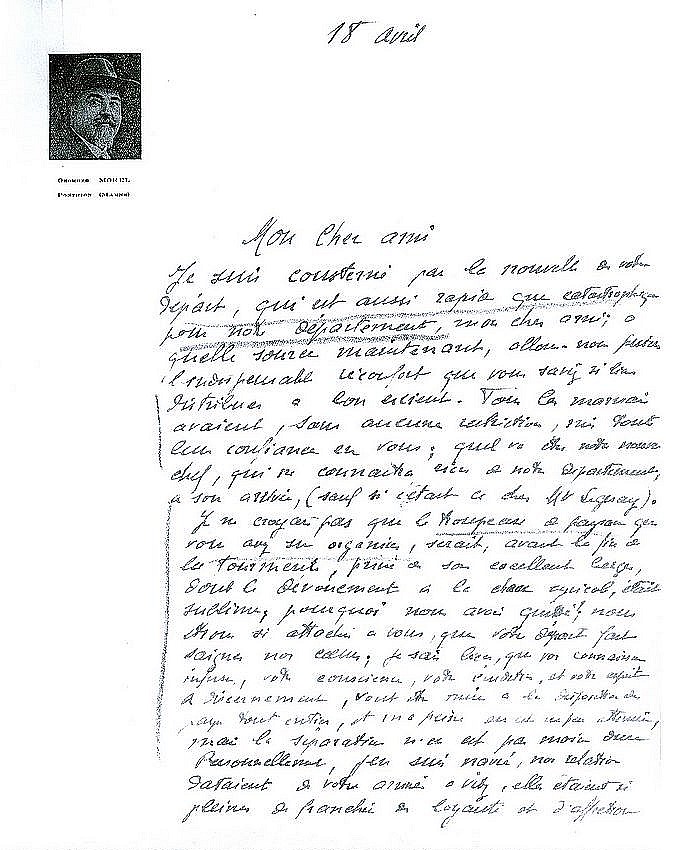 18 avril
GEORGES MOREL
Mon cher ami
Je suis consterné par la nouvelle de votre
départ, qui est aussi rapide que catastrophique
pour notre département, mon cher ami; a
quelle source maintenant, allons-nous puiser
l'indispensable réconfort que vous saviez si bien
distribuer a bon escient. Tous les marnais
avaient, sans aucune restriction, mis toute
leur confiance en vous; quel va être notre nouveau
chef, qui ne connaitra rien de notre département,
a son arrivée, (sauf si c'était ce cher Mr ).
Je ne croyais pas que le troupeau de paysans que
vous avez su organiser, serait, avant la fin de
la tourmente, privé de son excellent berger,
dont le dévouement a la chose agricole, était
sublime; pourquoi nous avoir quitté? nous
étions si attachés a vous, que votre départ fait
saigner nos cœurs; je sais bien, que vos connaissances
infuses, votre conscience, votre érudition, et votre esprit
de discernement, vont être mises a la disposition du
pays tout entier, et ma peine en est un peu atténuée,
mais la séparation n'en est pas moins dure
Personnellement, j'en suis navré, nos relations
dataient de votre arrivée a Vitry, elles étaient si
pleines de franchise de loyauté et d'affection